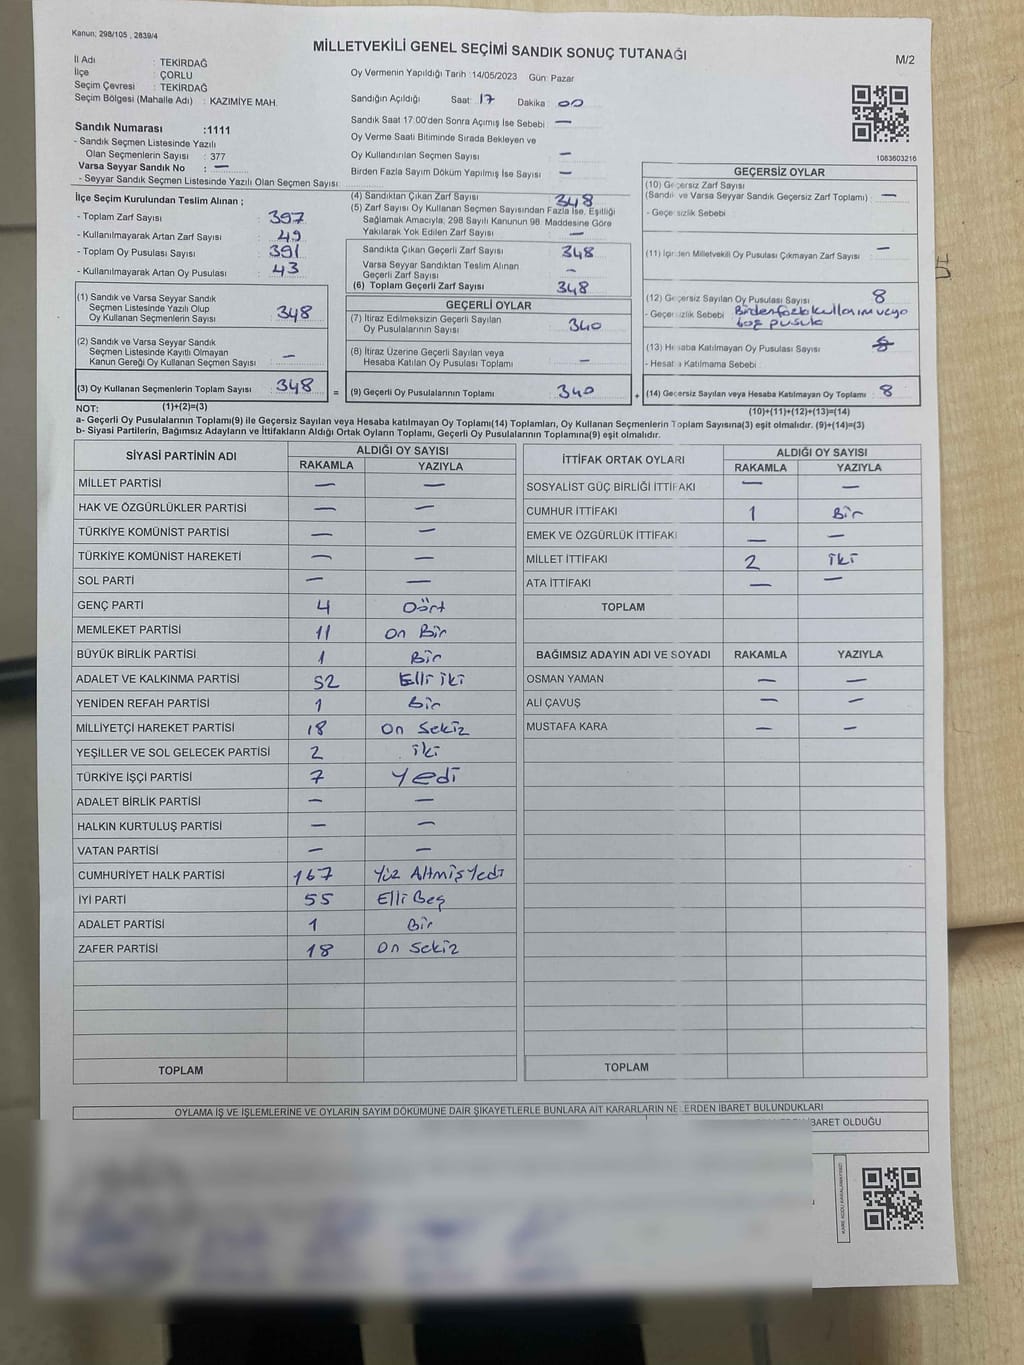 Kanun; 298/105 , 2839/4
MİLLETVEKİLİ GENEL SEÇİMİ SANDIK SONUÇ TUTANAĞI
M/2
İl Adı : TEKİRDAĞ
İlçe : ÇORLU
Seçim Çevresi : TEKİRDAĞ
Seçim Bölgesi (Mahalle Adı) : KAZIMİYE MAH.
Oy Vermenin Yapıldığı Tarih :14/05/2023 Gün: Pazar
Sandığın Açıldığı Saat: 17 Dakika : 00
Sandık Saat 17:00'den Sonra Açımış İse Sebebi : —
Oy Verme Saati Bitiminde Sırada Bekleyen ve
Oy Kullandırılan Seçmen Sayısı : —
Birden Fazla Sayım Döküm Yapılmış İse Sayısı : —
1083603216
Sandık Numarası :1111
- Sandık Seçmen Listesinde Yazılı
Olan Seçmenlerin Sayısı : 377
Varsa Seyyar Sandık No : —
- Seyyar Sandık Seçmen Listesinde Yazılı Olan Seçmen Sayısı :
İlçe Seçim Kurulundan Teslim Alınan ;
- Toplam Zarf Sayısı : 397
- Kullanılmayarak Artan Zarf Sayısı : 49
- Toplam Oy Pusulası Sayısı : 391
- Kullanılmayarak Artan Oy Pusulası : 43
(1) Sandık ve Varsa Seyyar Sandık
Seçmen Listesinde Yazılı Olup
Oy Kullanan Seçmenlerin Sayısı : 348
(2) Sandık ve Varsa Seyyar Sandık
Seçmen Listesinde Kayıtlı Olmayan
Kanun Gereği Oy Kullanan Seçmen Sayısı : —
(3) Oy Kullanan Seçmenlerin Toplam Sayısı : 348 =
(4) Sandıktan Çıkan Zarf Sayısı : 348
(5) Zarf Sayısı Oy Kullanan Seçmen Sayısından Fazla İse, Eşitliği
Sağlamak Amacıyla, 298 Sayılı Kanunun 98. Maddesine Göre
Yakılarak Yok Edilen Zarf Sayısı : —
Sandıkta Çıkan Geçerli Zarf Sayısı : 348
Varsa Seyyar Sandıktan Teslim Alınan
Geçerli Zarf Sayısı : —
(6) Toplam Geçerli Zarf Sayısı : 348
GEÇERLİ OYLAR
(7) İtiraz Edilmeksizin Geçerli Sayılan
Oy Pusulalarının Sayısı : 340
(8) İtiraz Üzerine Geçerli Sayılan veya
Hesaba Katılan Oy Pusulaları Toplamı : —
(9) Geçerli Oy Pusulalarının Toplamı : 340 +
GEÇERSİZ OYLAR
(10) Geçersiz Zarf Sayısı
(Sandık ve Varsa Seyyar Sandık Geçersiz Zarf Toplamı) : —
- Geçersizlik Sebebi :
(11) İçinden Milletvekili Oy Pusulası Çıkmayan Zarf Sayısı : —
(12) Geçersiz Sayılan Oy Pusulası Sayısı : 8
- Geçersizlik Sebebi : Birden fazla kullanım veya
boş pusula
(13) Hesaba Katılmayan Oy Pusulası Sayısı :
- Hesaba Katılmama Sebebi :
(14) Geçersiz Sayılan veya Hesaba Katılmayan Oy Toplamı : 8
NOT: (1)+(2)=(3)
(10)+(11)+(12)+(13)=(14)
a- Geçerli Oy Pusulalarının Toplamı(9) ile Geçersiz Sayılan veya Hesaba katılmayan Oy Toplamı(14) Toplamları, Oy Kullanan Seçmenlerin Toplam Sayısına(3) eşit olmalıdır. (9)+(14)=(3)
b- Siyasi Partilerin, Bağımsız Adayların ve İttifakların Aldığı Ortak Oyların Toplamı, Geçerli Oy Pusulalarının Toplamına(9) eşit olmalıdır.
SİYASİ PARTİNİN ADI ALDIĞI OY SAYISI
RAKAMLA YAZIYLA
MİLLET PARTİSİ — —
HAK VE ÖZGÜRLÜKLER PARTİSİ — —
TÜRKİYE KOMÜNİST PARTİSİ — —
TÜRKİYE KOMÜNİST HAREKETİ — —
SOL PARTİ — —
GENÇ PARTİ 4 Dört
MEMLEKET PARTİSİ 11 On Bir
BÜYÜK BİRLİK PARTİSİ 1 Bir
ADALET VE KALKINMA PARTİSİ 52 Elli iki
YENİDEN REFAH PARTİSİ 1 Bir
MİLLİYETÇİ HAREKET PARTİSİ 18 On Sekiz
YEŞİLLER VE SOL GELECEK PARTİSİ 2 iki
TÜRKİYE İŞÇİ PARTİSİ 7 Yedi
ADALET BİRLİK PARTİSİ — —
HALKIN KURTULUŞ PARTİSİ — —
VATAN PARTİSİ — —
CUMHURİYET HALK PARTİSİ 167 Yüz Altmış Yedi
İYİ PARTİ 55 Elli Beş
ADALET PARTİSİ 1 Bir
ZAFER PARTİSİ 18 On Sekiz
TOPLAM
İTTİFAK ORTAK OYLARI ALDIĞI OY SAYISI
RAKAMLA YAZIYLA
SOSYALİST GÜÇ BİRLİĞİ İTTİFAKI — —
CUMHUR İTTİFAKI 1 Bir
EMEK VE ÖZGÜRLÜK İTTİFAKI — —
MİLLET İTTİFAKI 2 iki
ATA İTTİFAKI — —
TOPLAM
BAĞIMSIZ ADAYIN ADI VE SOYADI RAKAMLA YAZIYLA
OSMAN YAMAN — —
ALİ ÇAVUŞ — —
MUSTAFA KARA — —
TOPLAM
OYLAMA İŞ VE İŞLEMLERİNE VE OYLARIN SAYIM DÖKÜMÜNE DAİR ŞİKAYETLERLE BUNLARA AİT KARARLARIN NELERDEN İBARET BULUNDUKLARI
İBARET OLDUĞU